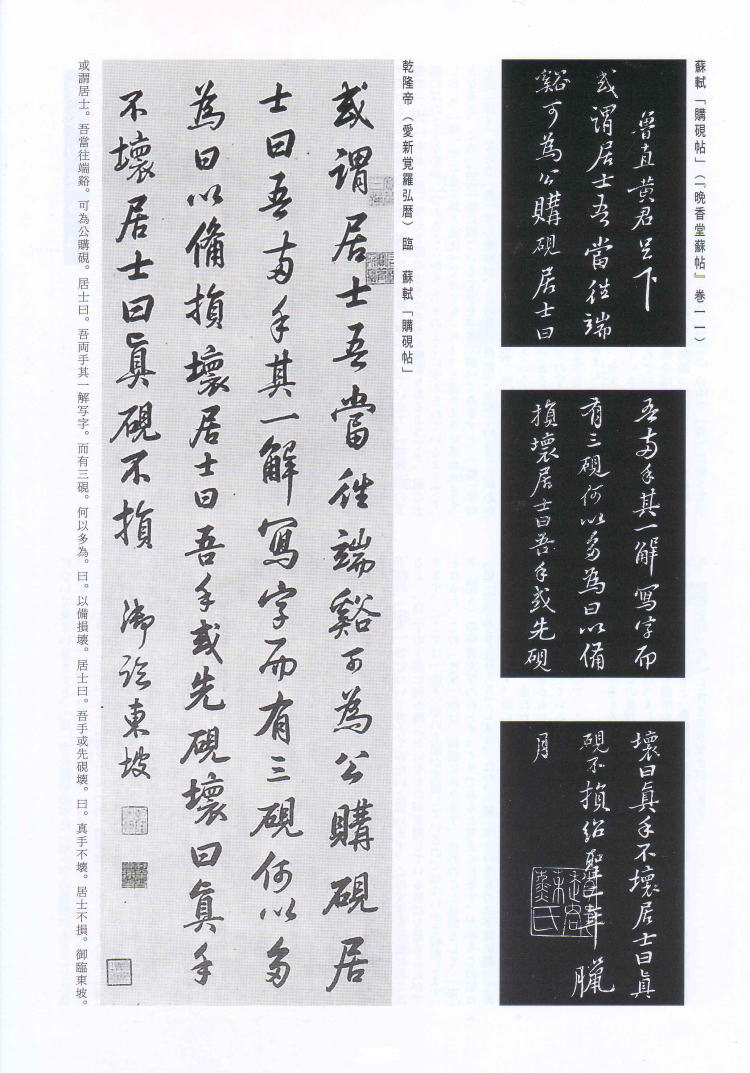 蘇軾「購硯帖」（『晩香堂蘇帖』巻一一）
魯直黄君足下
或謂居士吾當往端
谿可為公購硯居士曰
吾兩手其一解寫字而
有三硯何以多為曰以備
損壞居士曰吾手或先硯
壞曰眞手不壞居士曰眞
硯不損紹聖二年臘
月
乾隆帝（愛新覚羅弘暦）臨　蘇軾「購硯帖」
或謂居士吾當往端谿可為公購硯居
士曰吾兩手其一解寫字而有三硯何以多
為曰以備損壞居士曰吾手或先硯壞曰眞手
不壞居士曰眞硯不損　御臨東坡
或謂居士。吾當往端谿。可為公購硯。居士曰。吾両手其一解写字。而有三硯。何以多為。曰。以備損壞。居士曰。吾手或先硯壞。曰。真手不壞。居士不損。御臨東坡。